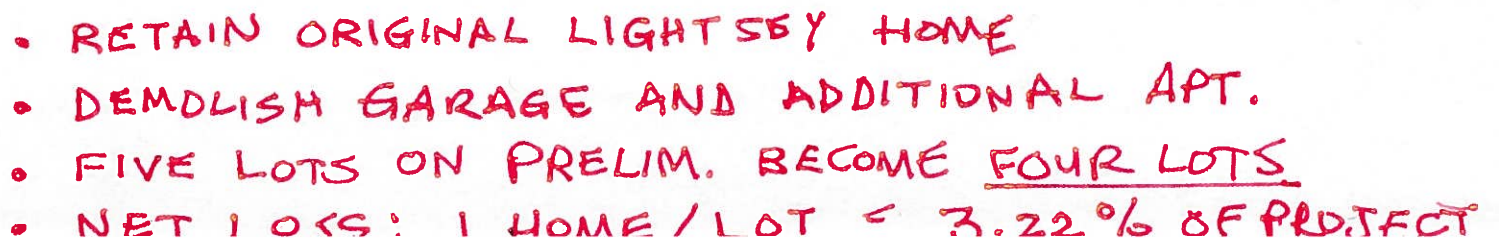 • RETAIN ORIGINAL LIGHTSEY HOME
• DEMOLISH GARAGE AND ADDITIONAL APT.
• FIVE LOTS ON PRELIM. BECOME FOUR LOTS
• NET LOSS: 1 HOME/LOT = 3.22% OF PROJECT